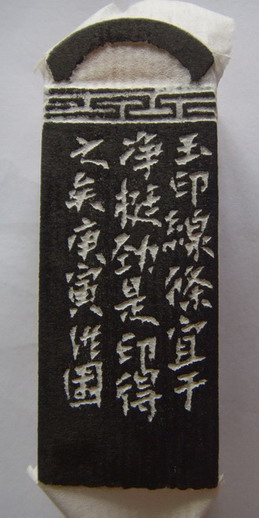 玉印線條宜干
净挺劲是印得
之矣庚寅洪園